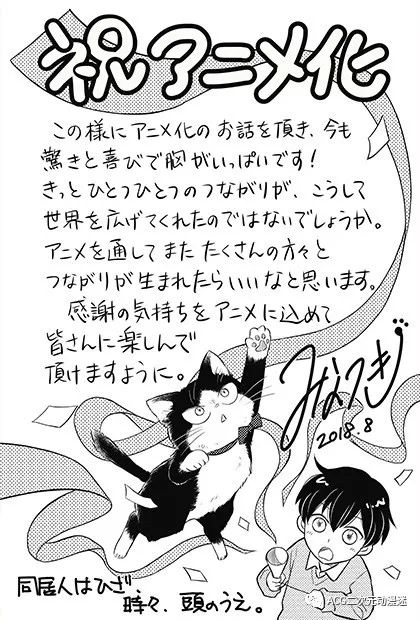 祝アニメ化
この様にアニメ化のお話を頂き、今も
驚きと喜びで胸がいっぱいです！
きっとひとつひとつのつながりが、こうして
世界を広げてくれたのではないでしょうか。
アニメを通してまたたくさんの方々と
つながりが生まれたらいいなと思います。
感謝の気持ちをアニメに込めて
皆さんに楽しんで
頂けますように。
みなつき
2018.8
同居人はひざ、
時々、頭のうえ。
ACG二次元动漫迷